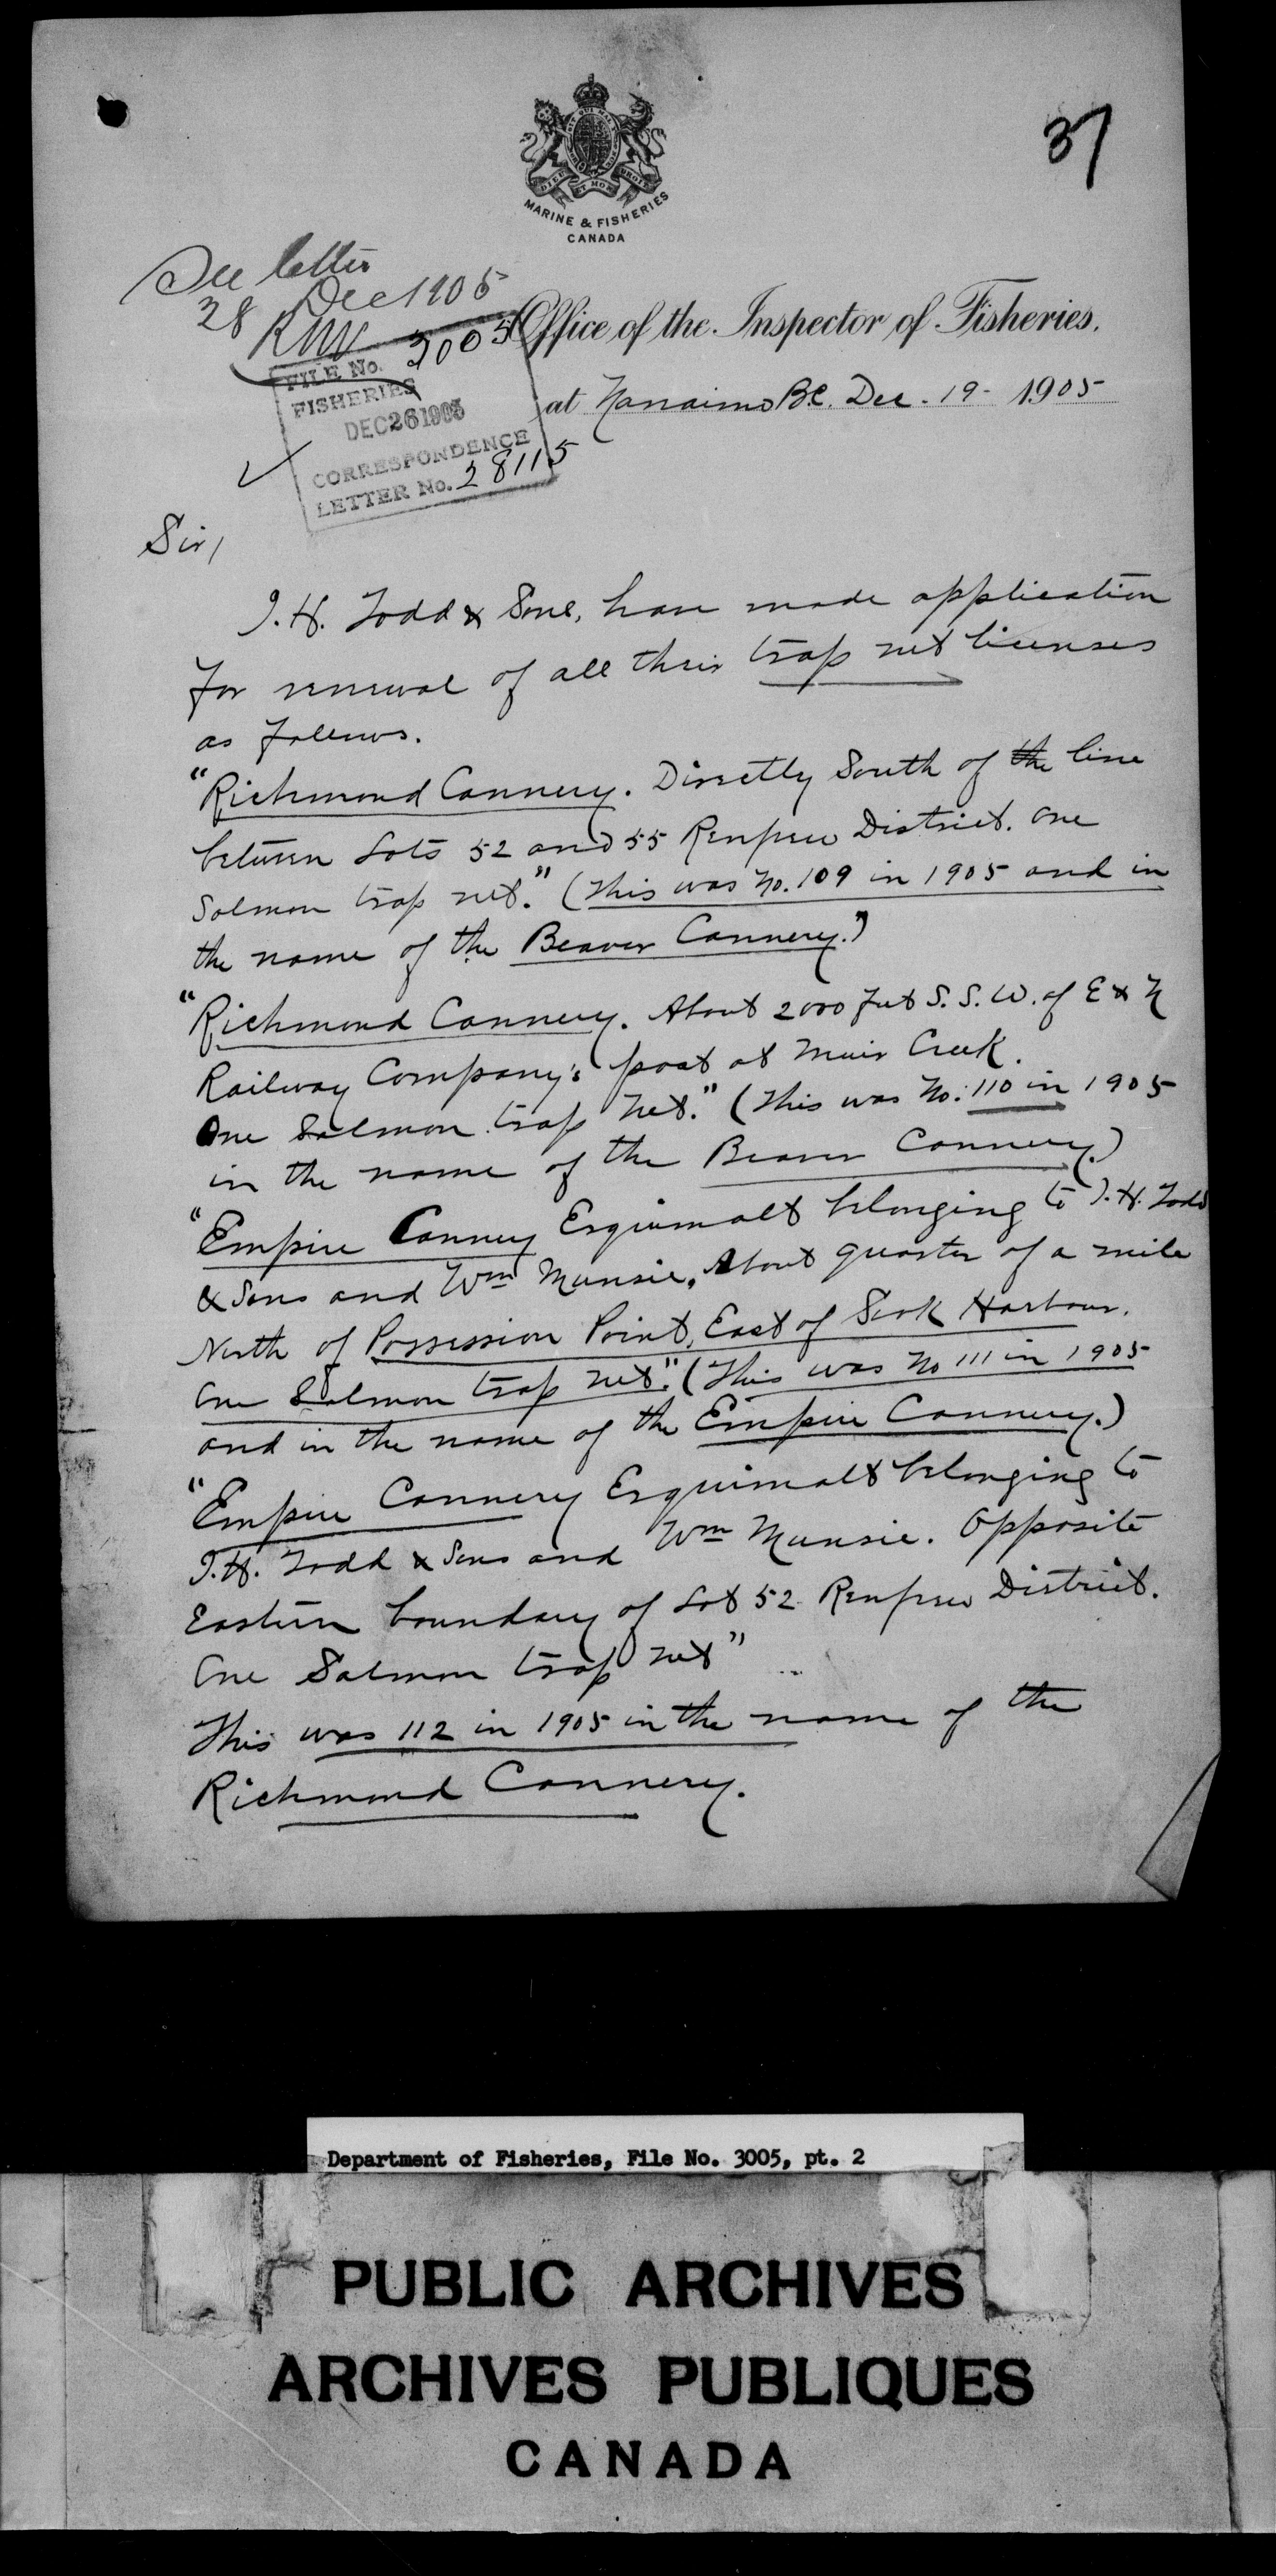 37
DIEU ET MON DROIT
MARINE & FISHERIES
CANADA
See letter
28 Dec 1905
3005
Office of the Inspector of Fisheries.
FILE No.
FISHERIES
DEC 26 1905
CORRESPONDENCE
LETTER No. 28115
at Nanaimo B.C. Dec. 19- 1905
Sir,
J. H. Todd & Sons, have made application
for renewal of all their trap net licenses
as follows.
"Richmond Cannery. Directly South of the line
between Lots 52 and 55 Renfrew District. One
Salmon trap net." (This was No. 109 in 1905 and in
the name of the Beaver Cannery.")
"Richmond Cannery. About 2000 feet S. S. W. of E & N
Railway Company's post at Muir Creek.
One Salmon trap net." (This was No. 110 in 1905
in the name of the Beaver Cannery.)
"Empire Cannery Esquimalt belonging to J. H. Todd
& Sons and Wm Munsie. About quarter of a mile
North of Possession Point, East of Sook Harbour.
One Salmon trap net." (This was No 111 in 1905
and in the name of the Empire Cannery.)
"Empire Cannery Esquimalt belonging to
J. H. Todd & Sons and Wm Munsie. Opposite
Eastern boundary of Lot 52 Renfrew District.
One Salmon trap net"
This was 112 in 1905 in the name of the
Richmond Cannery.
Department of Fisheries, File No. 3005, pt. 2
PUBLIC ARCHIVES
ARCHIVES PUBLIQUES
CANADA